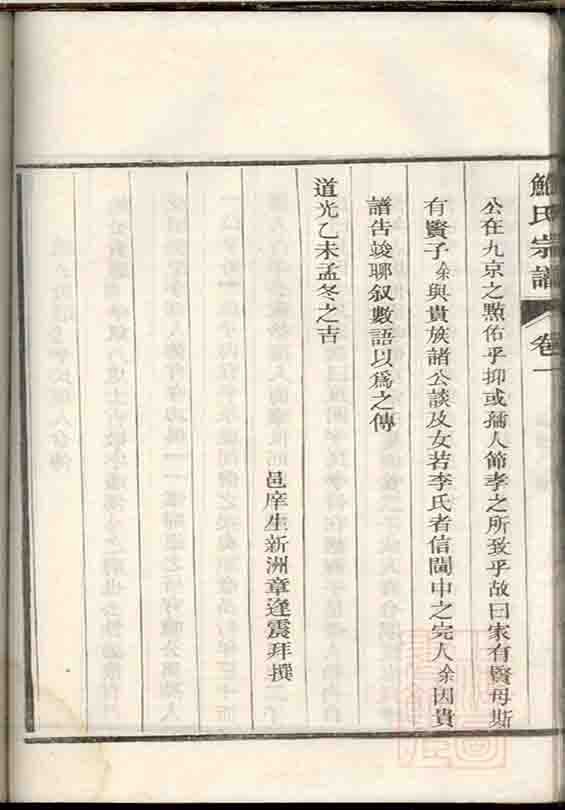 鮑氏宗譜 卷一
公在九京之黙佑乎抑或孺人節孝之所致乎故曰家有賢母斯
有賢子余與貴族諸公談及女若李氏者信閫中之完人余因貴
譜告竣聊叙數語以爲之傳
道光乙未孟冬之吉
邑庠生新洲章逢震拜撰